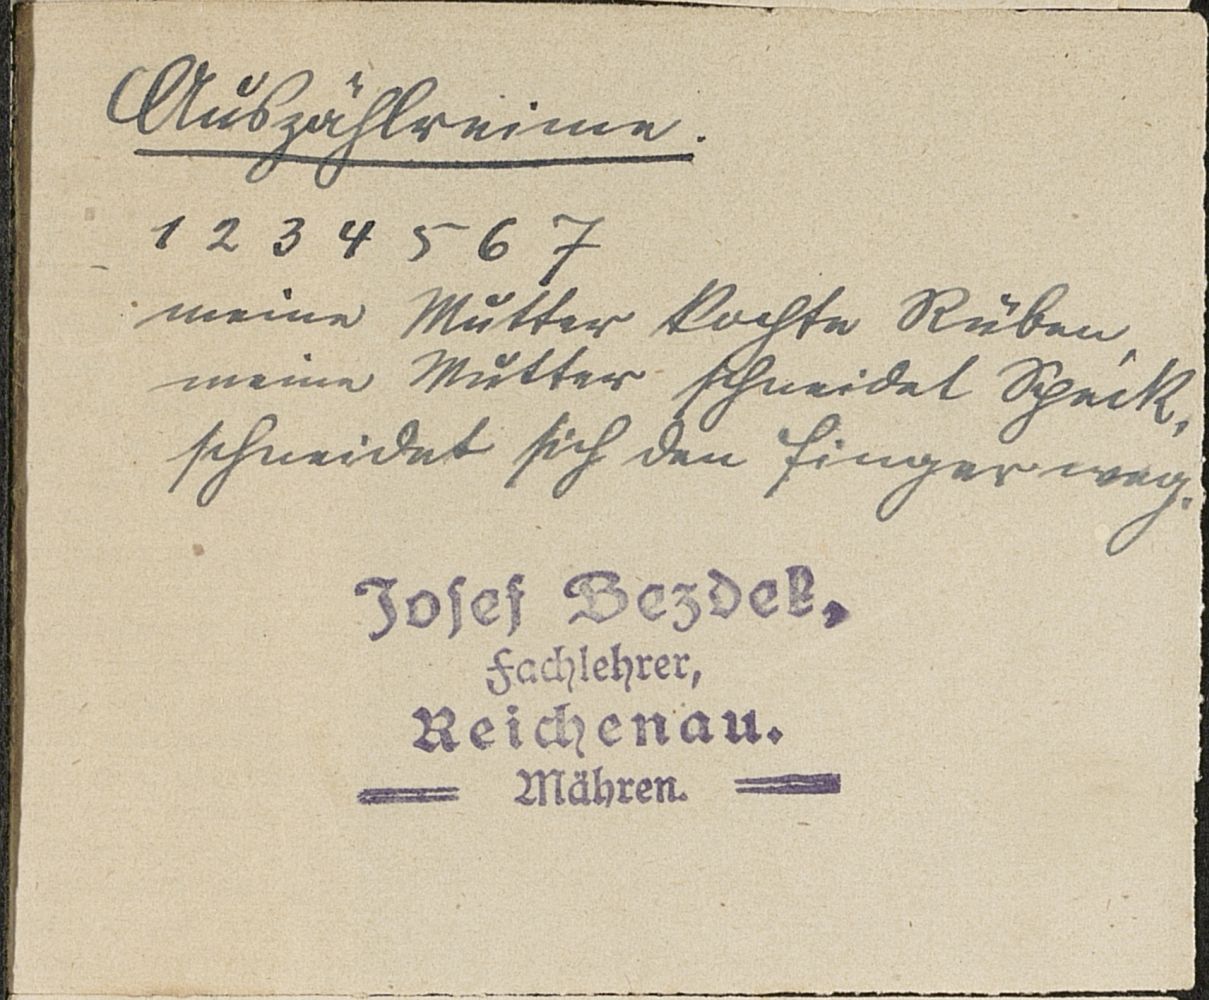 Auszählreime.
1 2 3 4 5 6 7
meine Mutter kochte Rüben,
meine Mutter schneidet Speck,
schneidet sich den Finger weg.
Josef Bezdek,
Fachlehrer,
Reichenau.
Mähren.